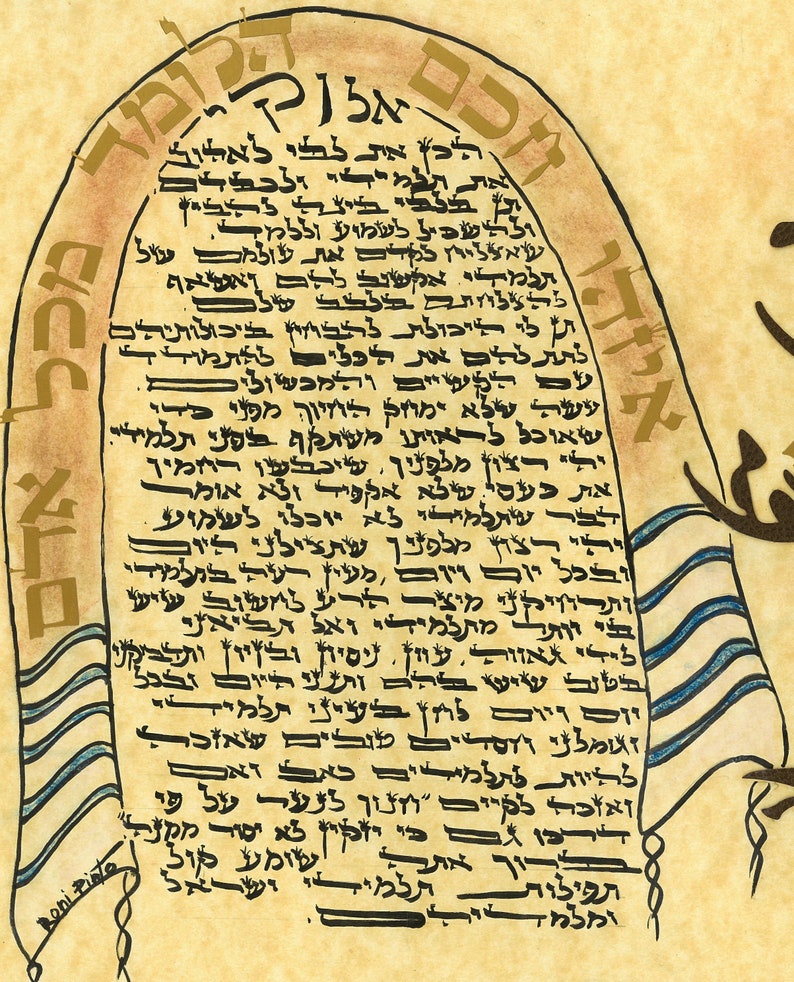 איזהו חכם הלומד מכל אדם
אלוקי
הכן את לבי לאהוב
את תלמידי ולכבדם
תן בלבי בינה להבין
ולהשכיל לשמוע וללמד.
שאצליח לקדם את עולמם של
תלמידי אקשוב להם ואשאף
להצלחתם בלבב שלם
תן לי היכולת להבחין ביכולותיהם
לתת להם את הכלים להתמודד
עם הקשיים והמכשולים.
עשה שלא ימחק החיוך מפני כדי
שאוכל לראותו משתקף בפני תלמידי.
יהי רצון מלפניך, שיכבשו רחמיך
את כעסי שלא אקפיד ולא אומר
דבר שתלמידי לא יוכלו לשמוע
יהי רצון מלפניך שתצילני היום
ובכל יום ויום, מעין רעה בתלמידי
ותרחיקני מיצר הרע לחשוב שיש
בי יותר מתלמידי ואל תביאני
לידי גאווה, עוון, ניסיון ובזיון ותדביקני
בטוב שיש בהם ותנני היום ובכל
יום ויום לחן בעיני תלמידי
וגומלני חסדים טובים שאזכה
להיות לתלמידים כאב ואם
ואזכה לקיים "חנוך לנער על פי
דרכו גם כי יזקין לא יסור ממנה"
ברוך אתה שומע קול
תפילות תלמידי ישראל
ומלמדיהם.
Roni Pinto